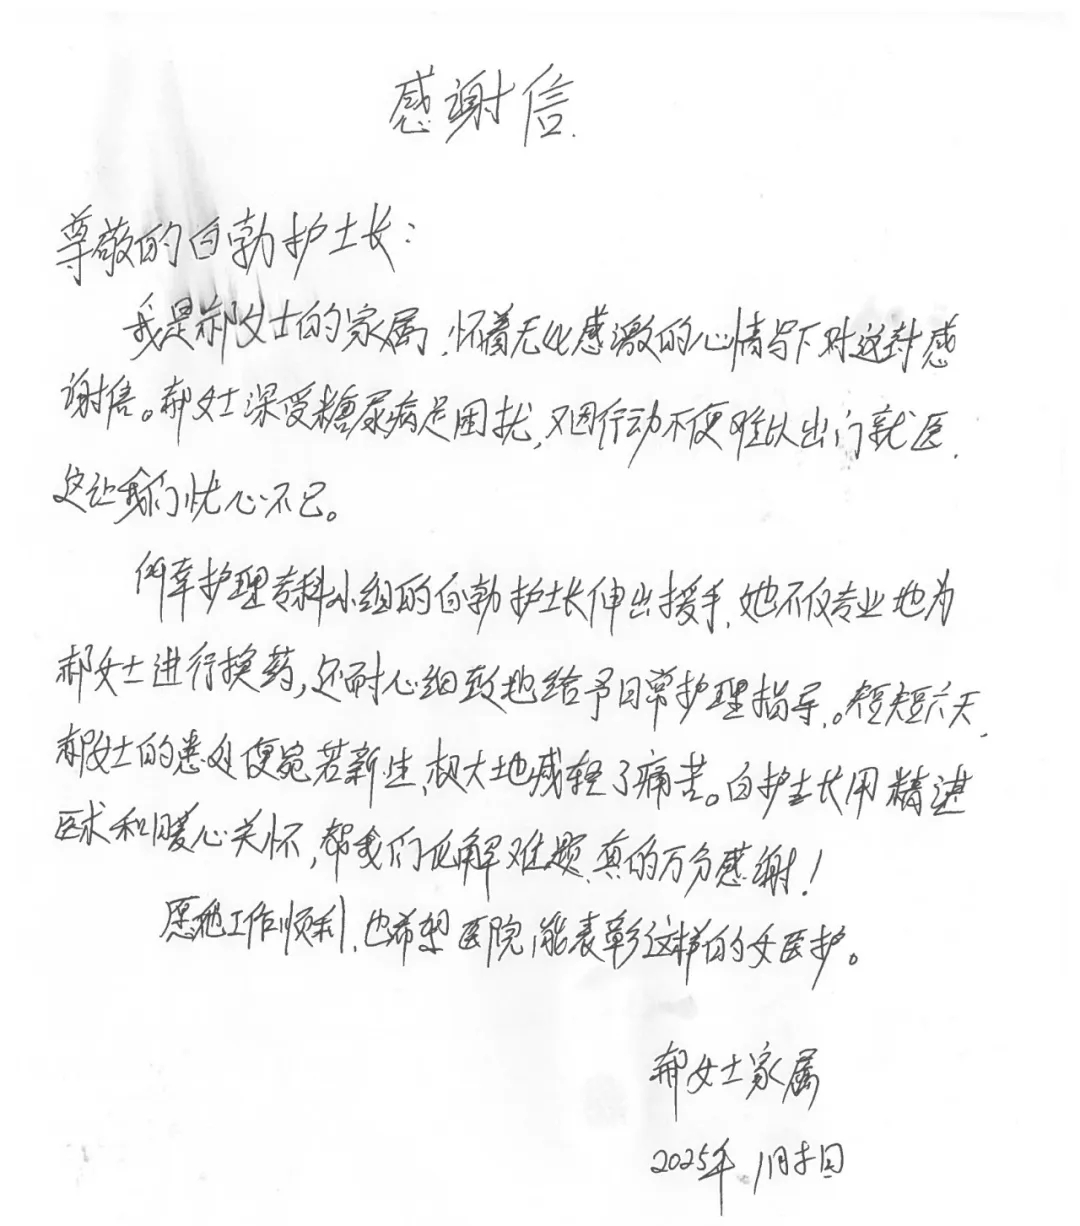 感谢信.
尊敬的白勃护士长：
我是郝女士的家属，怀着无比感激的心情写下对这封感
谢信。郝女士深受糖尿病足困扰，又因行动不便难以出门就医，
这让我们忧心不已。
所幸护理专科小组的白勃护士长伸出援手，她不仅专业地为
郝女士进行换药，还耐心细致地给予日常护理指导。短短六天，
郝女士的患处便宛若新生，极大地减轻了痛苦。白护士长用精湛
医术和暖心关怀，帮我们化解难题，真的万分感谢！
愿她工作顺利，也希望医院能表彰这样的女医护。
郝女士家属
2025年1月日